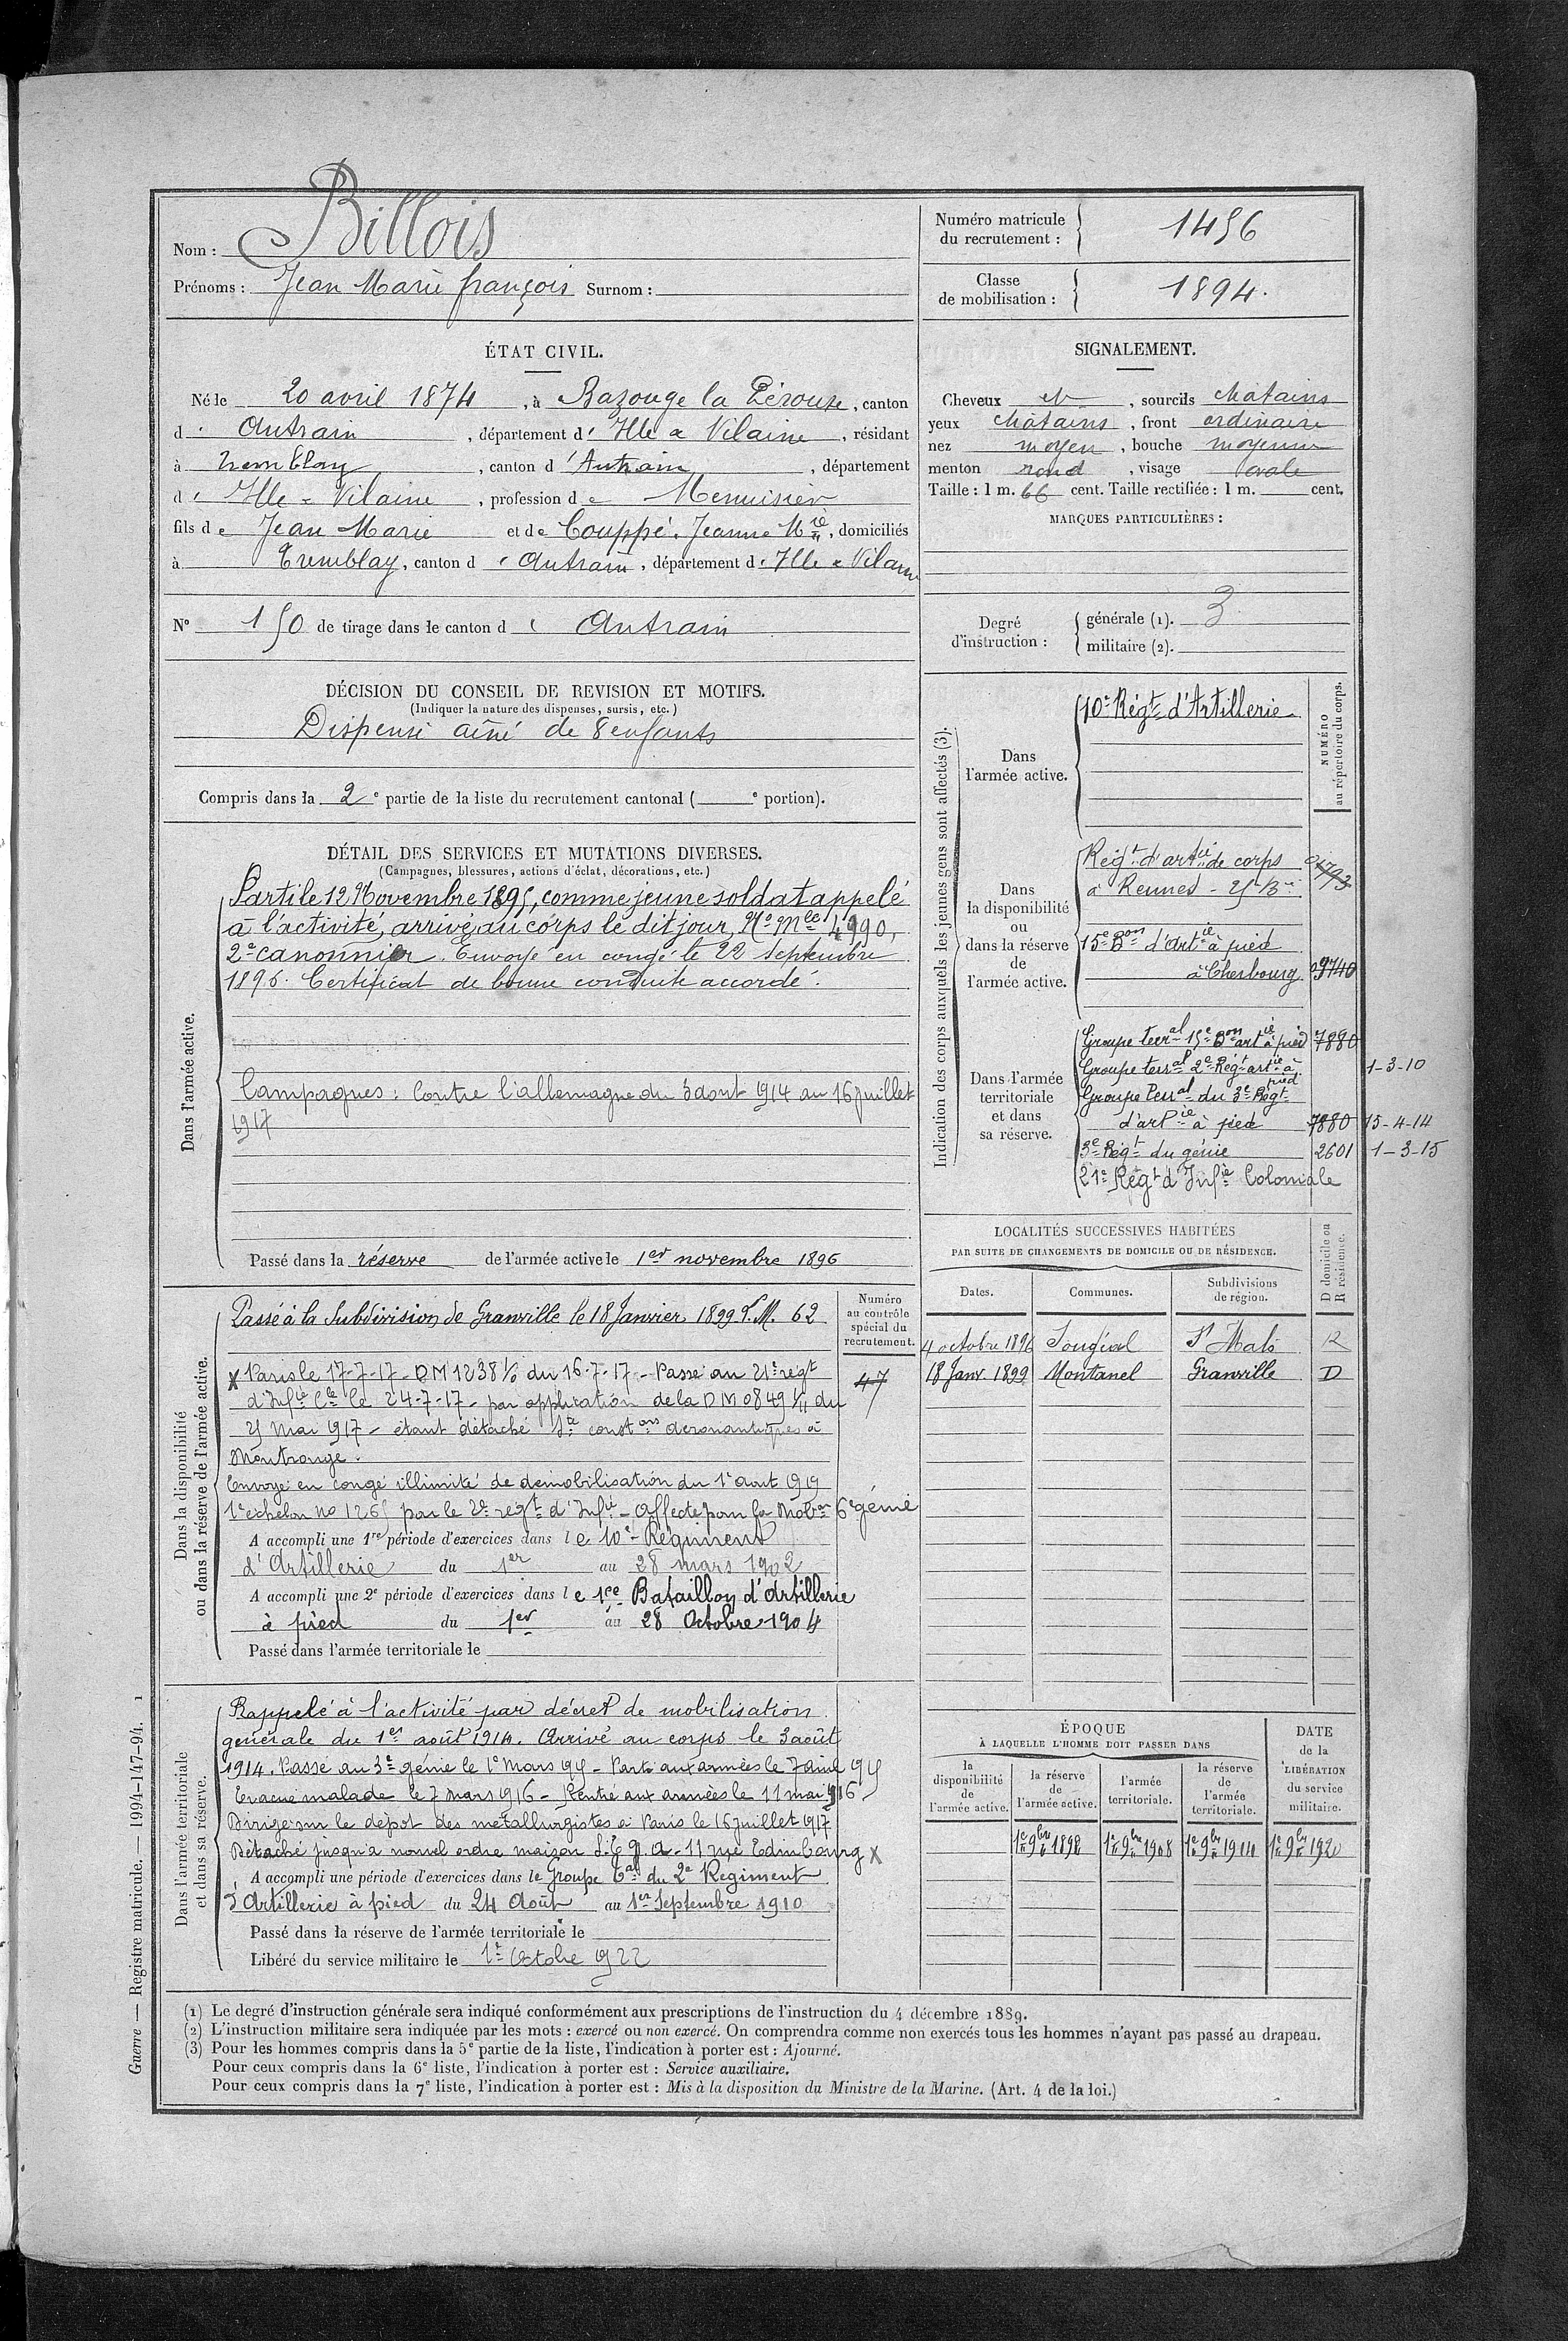 Nom : Billois
Prénoms : Jean Marie françois Surnom :
Numéro matricule du recrutement : 1456
Classe de mobilisation : 1894.
ÉTAT CIVIL.
Né le 20 avril 1874, à Bazouge la Pérouse, canton
d' Antrain, département d' Ille & Vilaine, résidant
à Tremblay, canton d' Antrain, département
d' Ille & Vilaine, profession de Menuisier
fils de Jean Marie et de Couppé Jeanne Mie, domiciliés
à Tremblay, canton d' Antrain, département d' Ille & Vilaine
N° 150 de tirage dans le canton d' Antrain
DÉCISION DU CONSEIL DE REVISION ET MOTIFS.
(Indiquer la nature des dispenses, sursis, etc.)
Dispensé aîné de 8 enfants
Compris dans la 2e partie de la liste du recrutement cantonal ( e portion).
SIGNALEMENT.
Cheveux et, sourcils chatains
yeux chatains, front ordinaire
nez moyen, bouche moyenne
menton rond, visage ovale
Taille : 1 m. 66 cent. Taille rectifiée : 1 m. cent.
MARQUES PARTICULIÈRES :
Degré d'instruction :
générale (1). 3
militaire (2).
DÉTAIL DES SERVICES ET MUTATIONS DIVERSES.
(Campagnes, blessures, actions d'éclat, décorations, etc.)
Dans l'armée active.
Parti le 12 Novembre 1895, comme jeune soldat appelé
à l'activité, arrivé au corps le dit jour, No Mle 4990,
2e canonnier. Envoyé en congé le 22 Septembre
1896. Certificat de bonne conduite accordé.
Campagnes : Contre l'allemagne du 3 aout 1914 au 16 juillet
1917
Passé dans la réserve de l'armée active le 1er novembre 1896
Indication des corps auxquels les jeunes gens sont affectés (3).
NUMÉRO au répertoire du corps.
Dans l'armée active.
10e Régt d'Artillerie
Dans la disponibilité ou dans la réserve de l'armée active.
Régt d'artie de corps
à Rennes - 25 Bie 1793
15e Bon d'Artie à pied
à Cherbourg 9740
Dans l'armée territoriale et dans sa réserve.
Groupe terral 15e Bon artie à pied 7880
Groupe terral 2e Régt artie à pied 1-3-10
Groupe terral du 3e Régt
d'artie à pied 7880 15-4-14
3e Régt du génie 2601 1-3-15
21e Régt d'Infie Coloniale
Dans la disponibilité ou dans la réserve de l'armée active.
Numéro au contrôle spécial du recrutement.
47
Passé à la Subdivision de Granville le 18 Janvier 1899 S.M. 62
x Paris le 17-7-17 - DM 1238 1/0 du 16-7-17 - Passé au 21e régt
d'Infie Cle le 24-7-17 - par application de la DM 0849 1/11 du
25 Mai 1917 - étant détaché Sté constons aeronautiques à
Montrouge.
Envoyé en congé illimité de démobilisation du 1er aout 1919
1e echelon no 1265 par le 2e régt d'Infie - Affecté pour la Mobon 6e génie
A accompli une 1re période d'exercices dans le 10e Régiment
d'Artillerie du 1er au 28 mars 1902
A accompli une 2e période d'exercices dans le 1er Bataillon d'Artillerie
à pied du 1er au 28 Octobre 1904
Passé dans l'armée territoriale le
LOCALITÉS SUCCESSIVES HABITÉES
PAR SUITE DE CHANGEMENTS DE DOMICILE OU DE RÉSIDENCE.
Dates. Communes. Subdivisions de région. D domicile ou R résidence.
4 octobre 1896 Sougéal St Malo R
18 Janv. 1899 Montanel Granville D
Dans l'armée territoriale et dans sa réserve.
Rappelé à l'activité par décret de mobilisation
générale du 1er août 1914. Arrivé au corps le 3 août
1914. Passé au 3e génie le 1e Mars 1915 - Parti aux armées le 7 1915
Evacué malade le 7 mars 1916 - Rentré aux armées le 11 mai 1916
Dirigé sur le dépot des métallurgistes à Paris le 16 juillet 1917
Détaché jusqu'à nouvel ordre maison - 11 rue Edimbourg x
A accompli une période d'exercices dans le Groupe Tal du 2e Régiment
d'Artillerie à pied du 24 Août au 1er Septembre 1910
Passé dans la réserve de l'armée territoriale le
Libéré du service militaire le 1er Octobre 1922
ÉPOQUE À LAQUELLE L'HOMME DOIT PASSER DANS
la disponibilité de l'armée active.
la réserve de l'armée active. 1er 9bre 1898
l'armée territoriale. 1er 9bre 1908
la réserve de l'armée territoriale. 1er 9bre 1914
DATE de la LIBÉRATION du service militaire. 1er 9bre 1920
(1) Le degré d'instruction générale sera indiqué conformément aux prescriptions de l'instruction du 4 décembre 1889.
(2) L'instruction militaire sera indiquée par les mots : exercé ou non exercé. On comprendra comme non exercés tous les hommes n'ayant pas passé au drapeau.
(3) Pour les hommes compris dans la 5e partie de la liste, l'indication à porter est : Ajourné.
Pour ceux compris dans la 6e liste, l'indication à porter est : Service auxiliaire.
Pour ceux compris dans la 7e liste, l'indication à porter est : Mis à la disposition du Ministre de la Marine. (Art. 4 de la loi.)
Guerre — Registre matricule. — 1994-147-94. 1